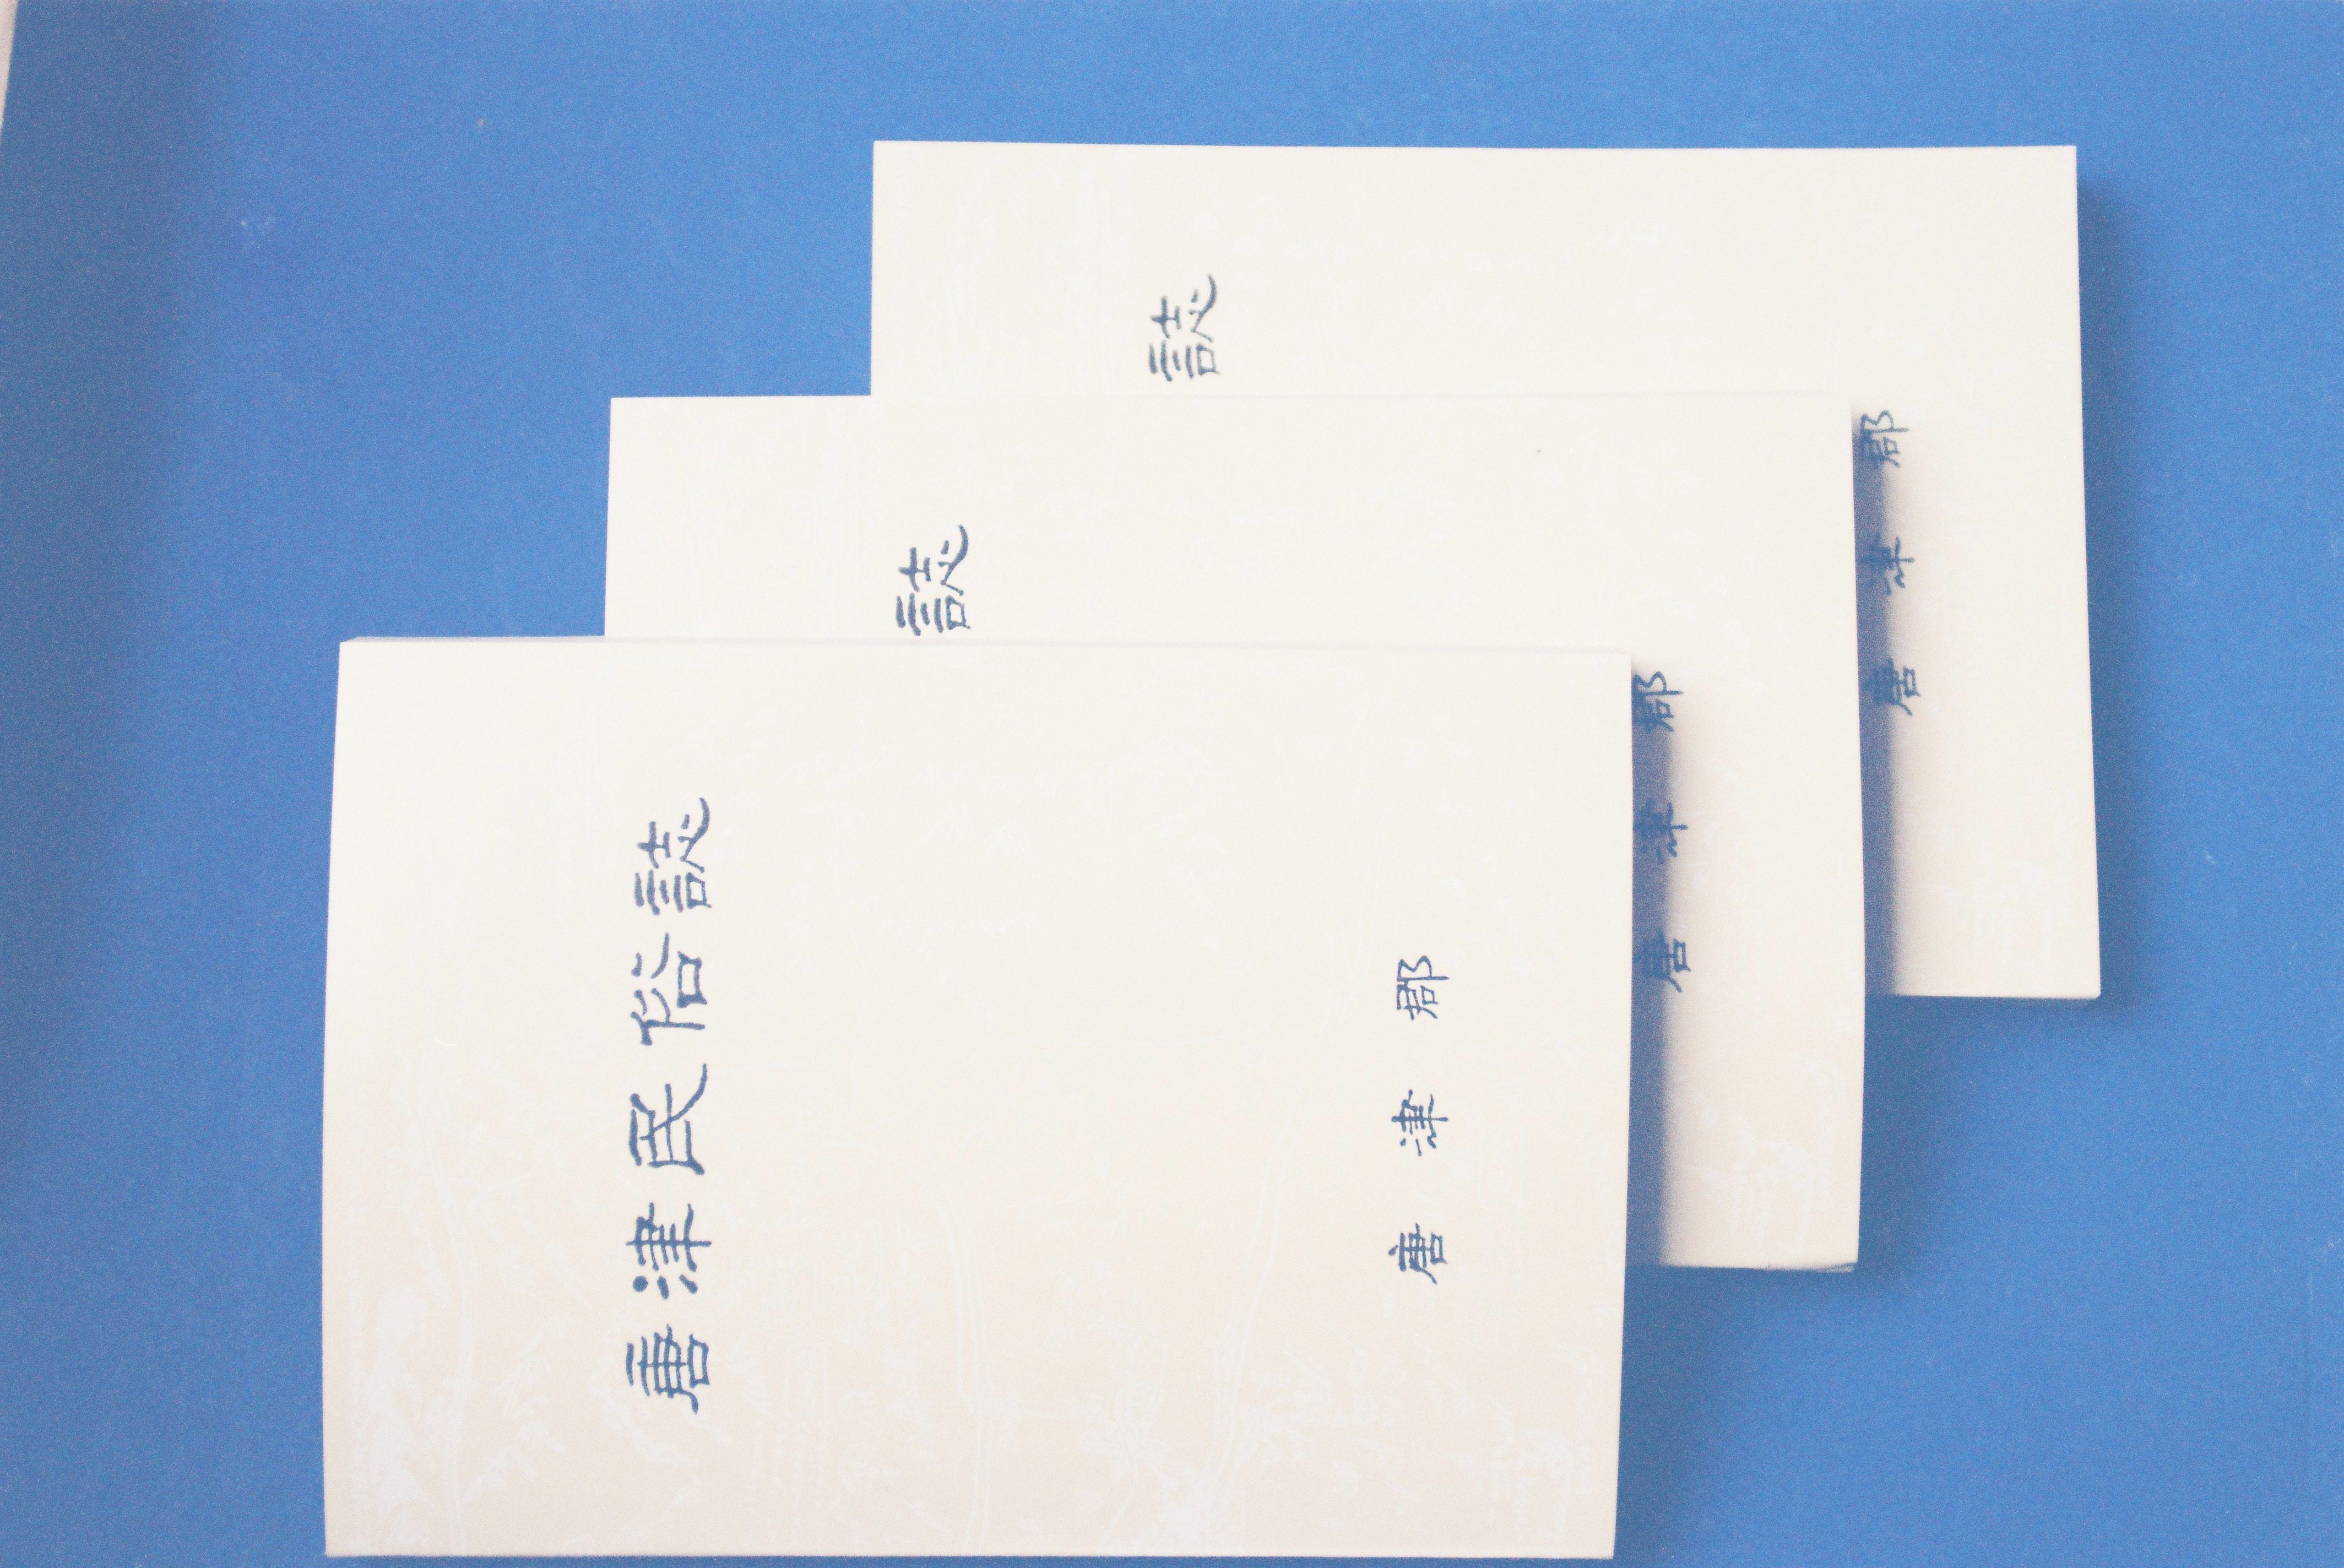 唐津民俗誌
唐津郡
誌
唐津郡
誌
唐津郡